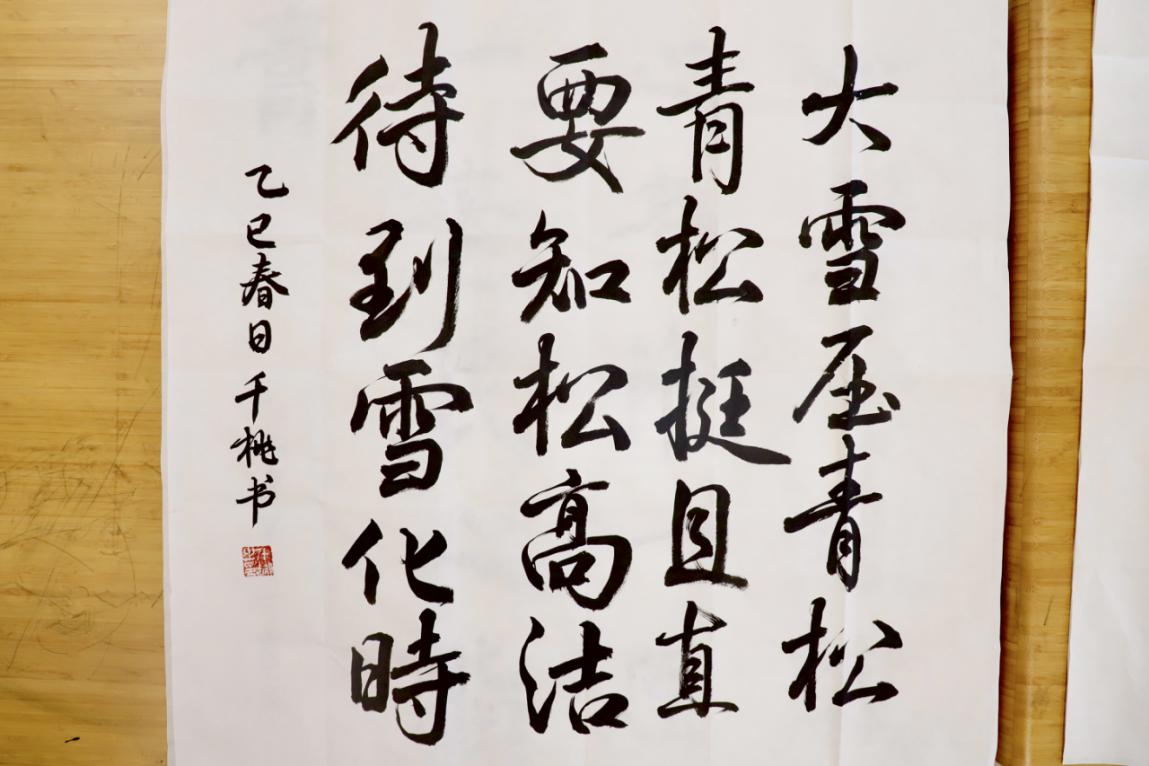 大雪压青松
青松挺且直
要知松高洁
待到雪化時
乙巳春日千桃书